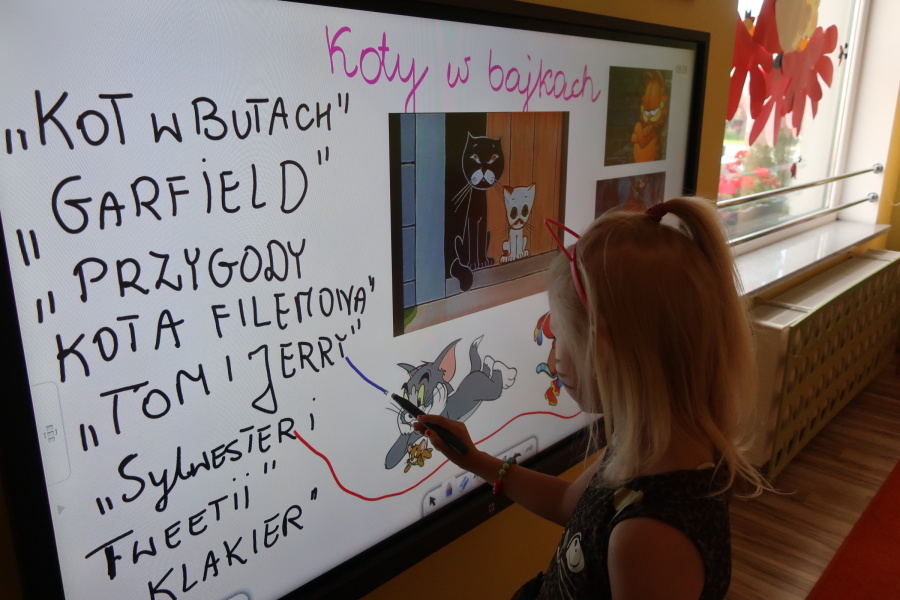 Koty w bajkach
„KOT W BUTACH"
„GARFiELD"
„PRZYGODY
KOTA FiLEMONA"
„TOM i JERRY"
„SylWESTER i
TWEETii"
KLAKiER"